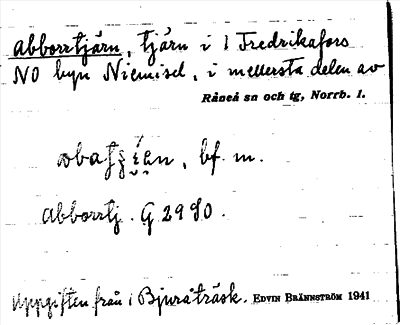 Abborrtjärn, tjärn i 1 Fredrikafors
NO byn Niemisel, i mellersta delen av
Råneå sn och tg, Norrb. l.
bf. m.
Abborrtj. G 2980.
Uppgiften från i Bjuråträsk. EDVIN BRÄNNSTRÖM 1941